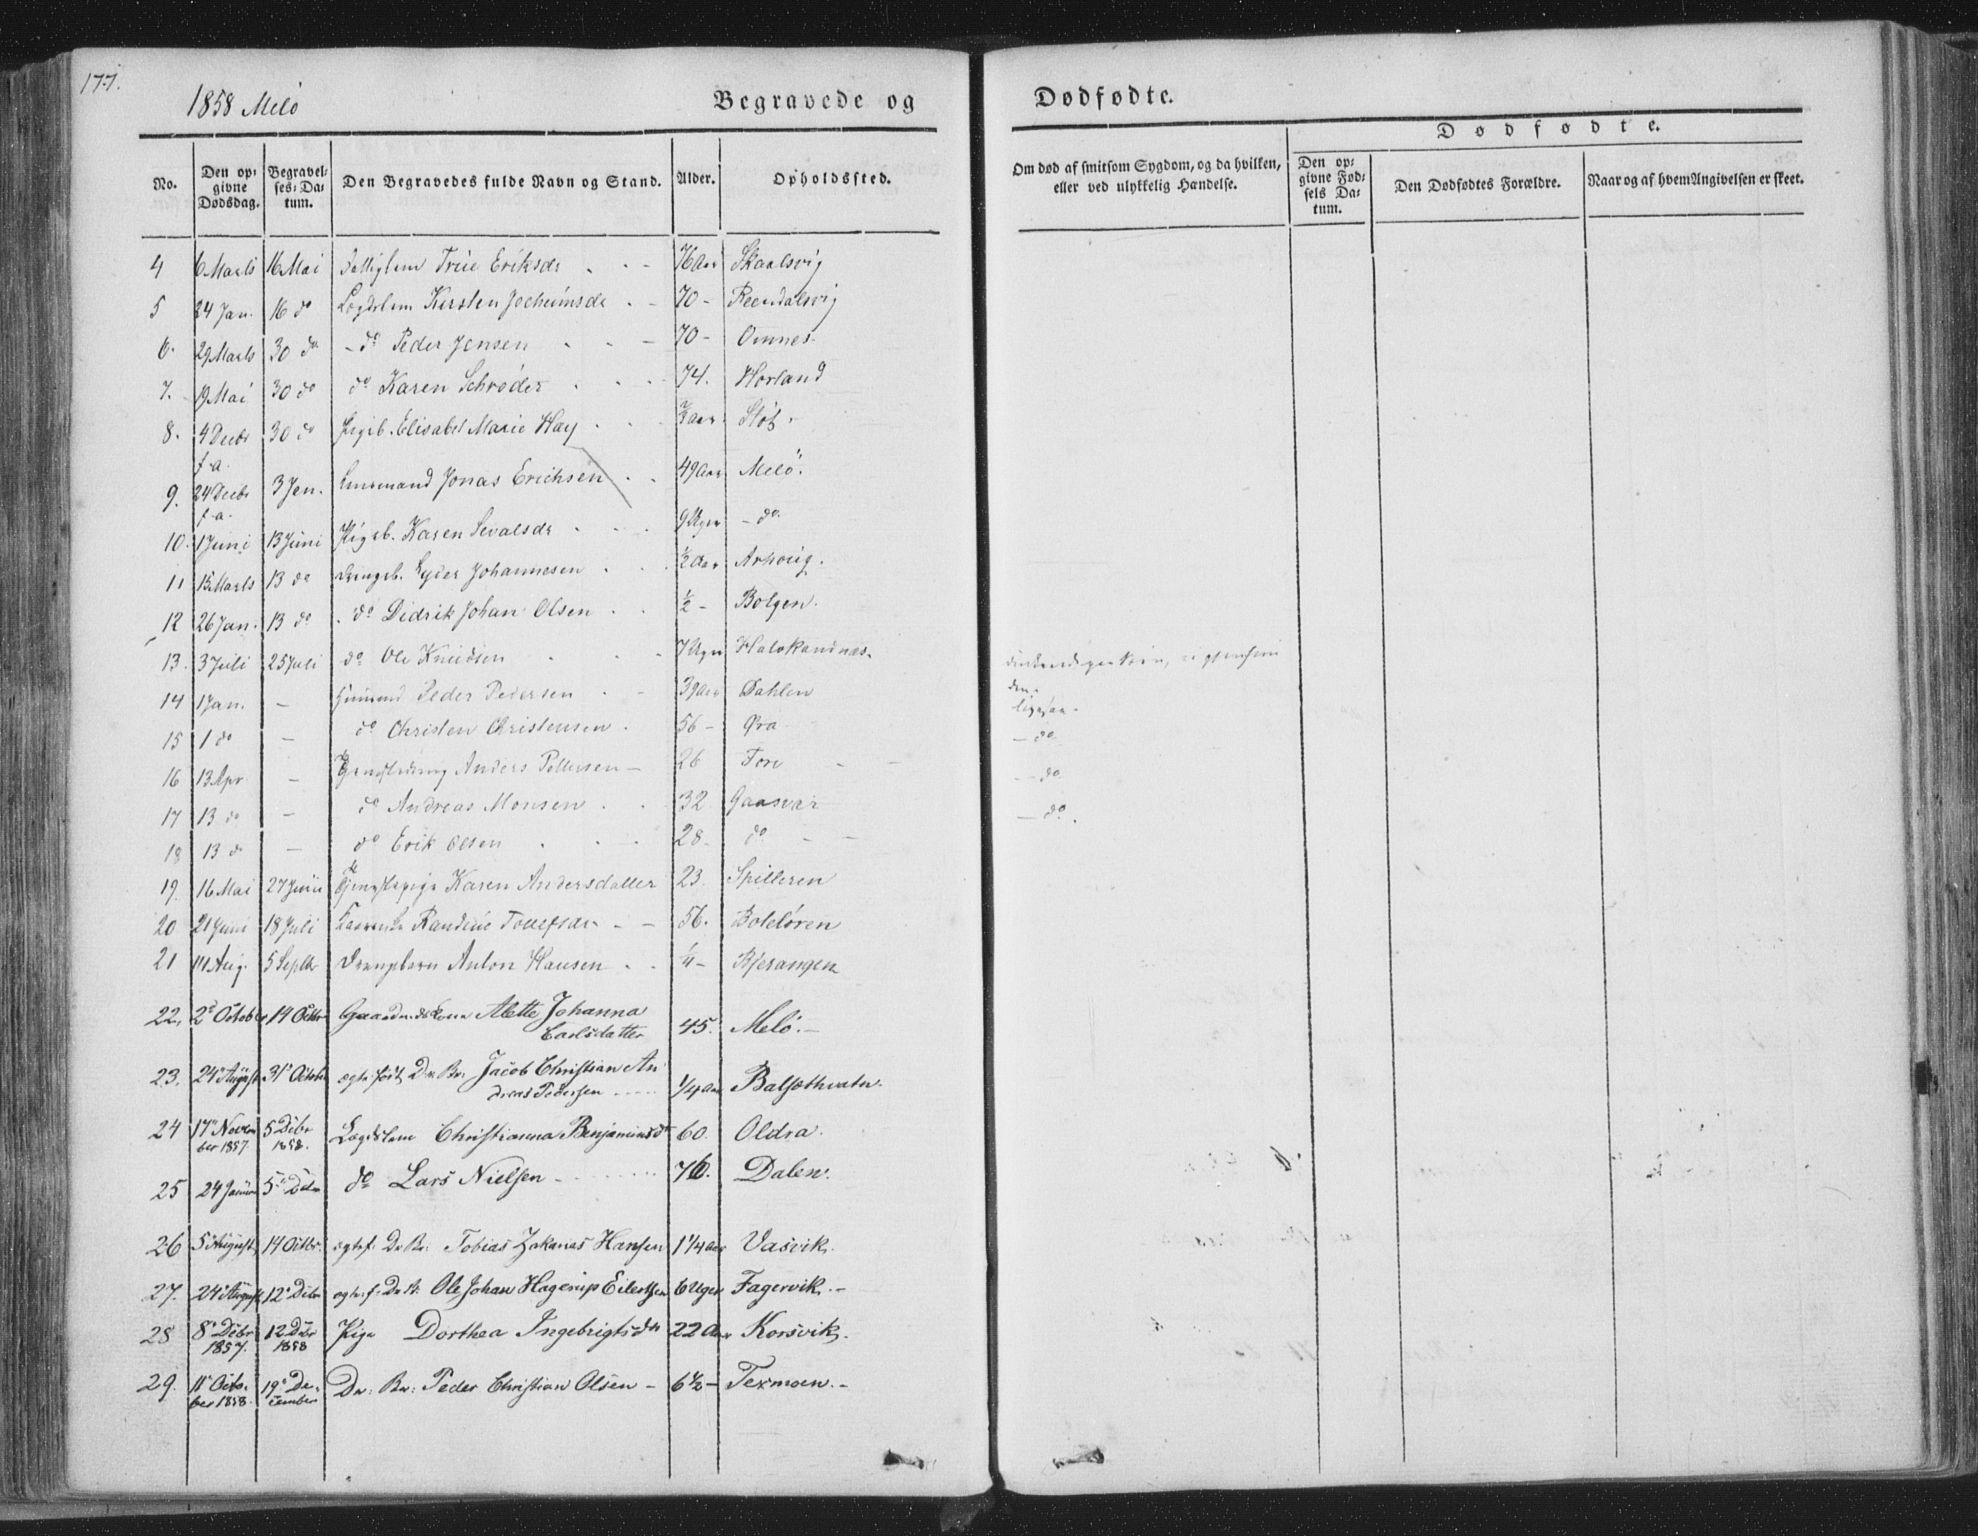 177.
1858 Melö
Begravede og
Dødfødte.
No.
Den opgivne Dødsdag.
Begravelses-Datum.
Den Begravedes fulde Navn og Stand.
Alder.
Opholdssted.
Om død af smitsom Sygdom, og da hvilken, eller ved ulykkelig Hændelse.
Dødfødte.
Den opgivne Fødsels Datum.
Den Dødfødtes Forældre.
Naar og af hvem Angivelsen er skeet.
4 6 Marts 16 Mai Eriksdr 76 Aar Skaalsvig
5 24 Jan. 16 do Lægdslem Kirsten Jocheimsdr 70 - Reendalsvig
6. 29 Marts 30 do - do Peder Jensen 70 - Omnes
7. 9 Mai 30 do do Karen Schrøder 74. Horland
8. 4 Decbr f.a. 30 do Pigeb. Elisabet Marie Hay Aar Støt
9. 24 Decbr f.a. 3 Jan. Jonas Erichsen 49 Aar Melö.
10. 1 Juni 13 Juni Pigeb. Karen Sevalsdr 9 Uger - do
11 15 Marts 13 do Drengb. Johannesen ½ Aar
12 26 Jan. 13 do do Didrik Johan Olsen ½ - Bolgen.
13. 3 Juli 25 Juli do Ole Knudsen 7 Uger
14 1 Jan. - Peder Pedersen 39 Aar Dahlen
15 1 do - do Christen Christensen 56 - Øra
- do
16 13 Apr - Anders Pettersen - 26 Fore
- do
17 13 do - do Andreas Monsen 32 Gaasvær
- do.
18 13 do - do Erik Olsen 28 - do
19. 16 Mai 27 Juni Tjenestepige Karen Andersdatter 23. Spilleren
20 21 Juni 18 Juli 56.
21 14 Aug. 5 Septbr Drengebarn Anton Hansen ¼ - Bjerangen
22. 2d October 14 Octbr Gaardmdskone Alette Johanna
Carlsdatter 45. Melö. -
23. 24d August 31d October ægte født Dr. Br. Jacob Christian An
dreas Pedersen 1/4 Aar
24 17d Novem
ber 1857 5d Dcbr
1858. Lægdslem Christianna Benjaminsdr 60. Oldra.
25 24 Januar 5d Dcbr do Lars Nielsen 76. Dalen.
26 5d August 14 Octbr. ægtef. Dr Br. Tobias Zakarias Hansen 1 1/4 Aar Vasvik.
27. 24d August 12d Dcbr ægte f. Dr Br. Ole Johan Hagerup Eilertsen 6 Uger Fagervik. -
28 8d Dcbr
1857. 12 Dcbr
1858 Pige Dorthea Ingebrigtsdr 22 Aar Korsvik.
29. 11d Octo-
ber 1858. 19d De-
cember Dr. Br. Peder Christian Olsen - 6½ - Texmoen. -